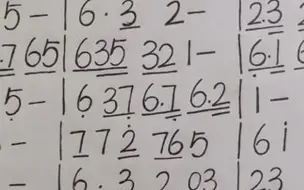 5 – | 6 · 3 2 – | 2.3
.7 65 | 635 32 1 – | 6.1 6
5 – | 6 37 6.7 6.2 | 1 –
– | 7 7 2 76 5 | 6 i
– | 6 . 3 2 03 | 23